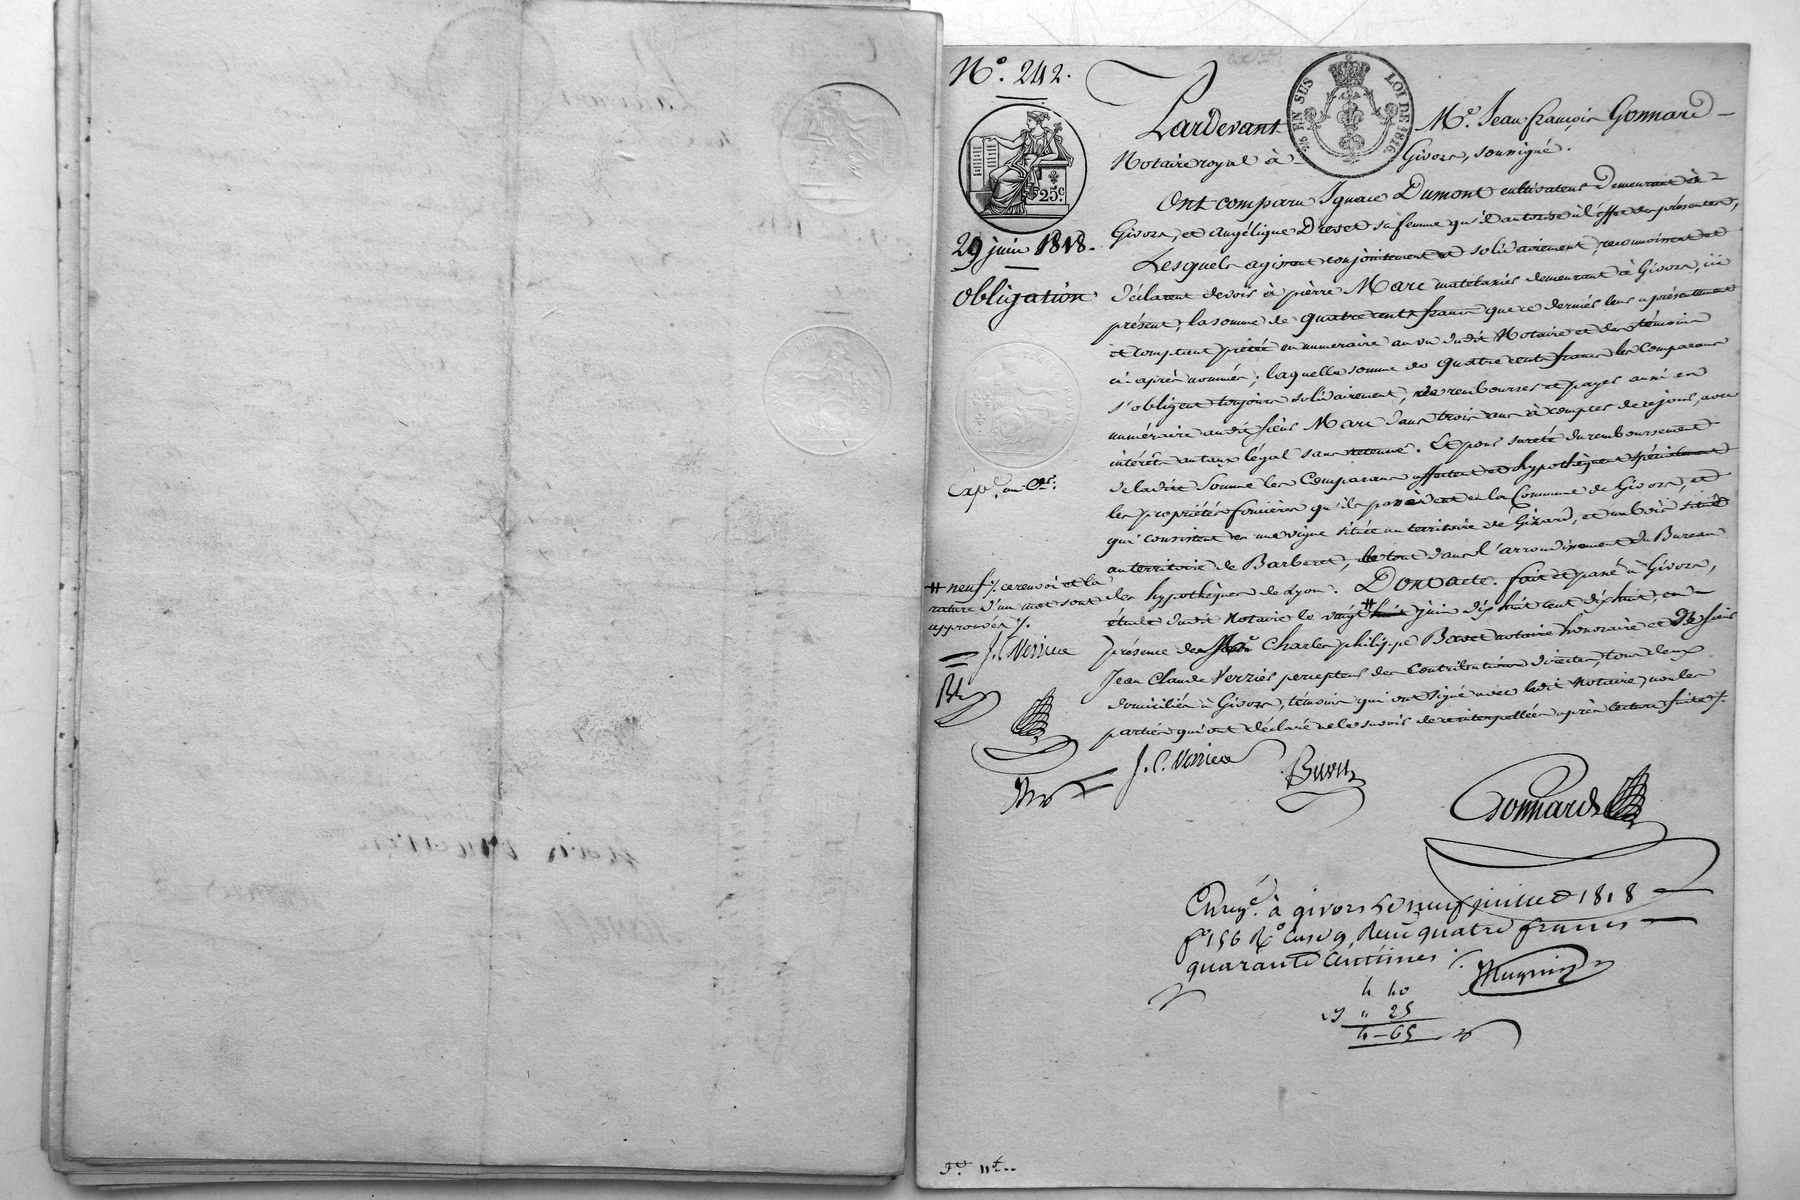 N.° 242.
25 EN SUS
LOI DE 1816.
25c.
29 juin 1818.
Obligation
Pardevant Me. Jean françois Gonnard
Notaire royal à Givors, soussigné.
Ont comparu Ignace Dumont cultivateur demeurant à
Givors, et Angélique Drevet sa femme qu'il autorise à l'effet des présentes,
Lesquels agissant conjointement et solidairement, reconnoissent et
déclarent devoir à pierre Marc matelassier demeurant à Givors, ici
présent, la somme de quatre cents francs que ce dernier leur a présentement
et comptant prêtée en numéraire au vu dudit Notaire et des témoins
ci après nommés; laquelle somme de quatre cents francs les Comparans
s'obligent toujours solidairement, rembourser et payer aussi en
numéraire audit sieur Marc dans trois ans à compter de ce jour, avec
intérêts au taux légal sans retenue. Et pour sureté du remboursement
de ladite Somme les Comparans affectent et hypothèquent spécialement
les propriétés foncières qu'ils possèdent en la Commune de Givors, et
qui consistent en une vigne située au territoire de Gizard, et un bois situé
au territoire de Barberet, le tout dans l'arrondissement du Bureau
des hypothèques de Lyon. Dont acte. fait et passé à Givors,
étude dudit Notaire le vingt # huit juin dix huit cent dix huit, en
présence de Charles philippe Bovet notaire honoraire et de sieur
Jean Claude Verrier percepteur des Contributions directes, tous deux
domiciliés à Givors, témoins qui ont signé avec ledit Notaire, non les
parties qui ont déclaré ne le savoir de ce interpellées après lecture faite ./.
# neuf ./. ce renvoi et la
rature d'un mot sont
approuvés ./.
J. C. Verrier
J. C. Verrier
Gonnard
Enregé. à givors le neuf juillet 1818
fo 156 Ro Case 9, Reçu quatre francs
quarante Centimes
Mugnier
4 40
" 25
4 - 65